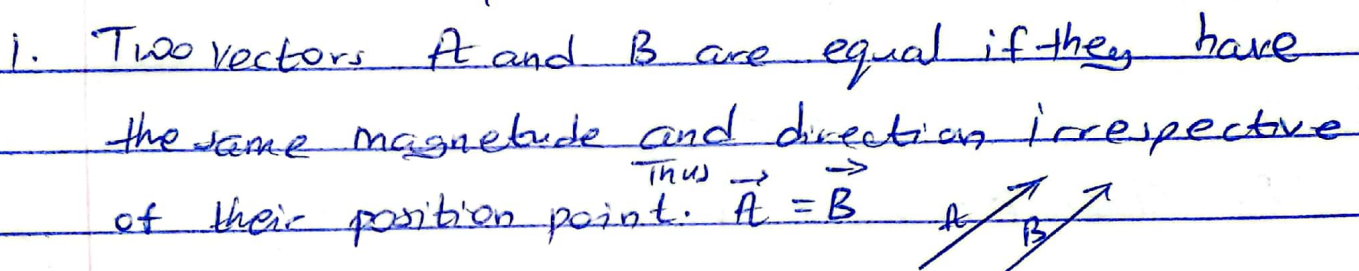 1. Two vectors A and B are equal if they have
the same magnetude and direction irrespective
of their position point. Thus A⃗ = B⃗
A B